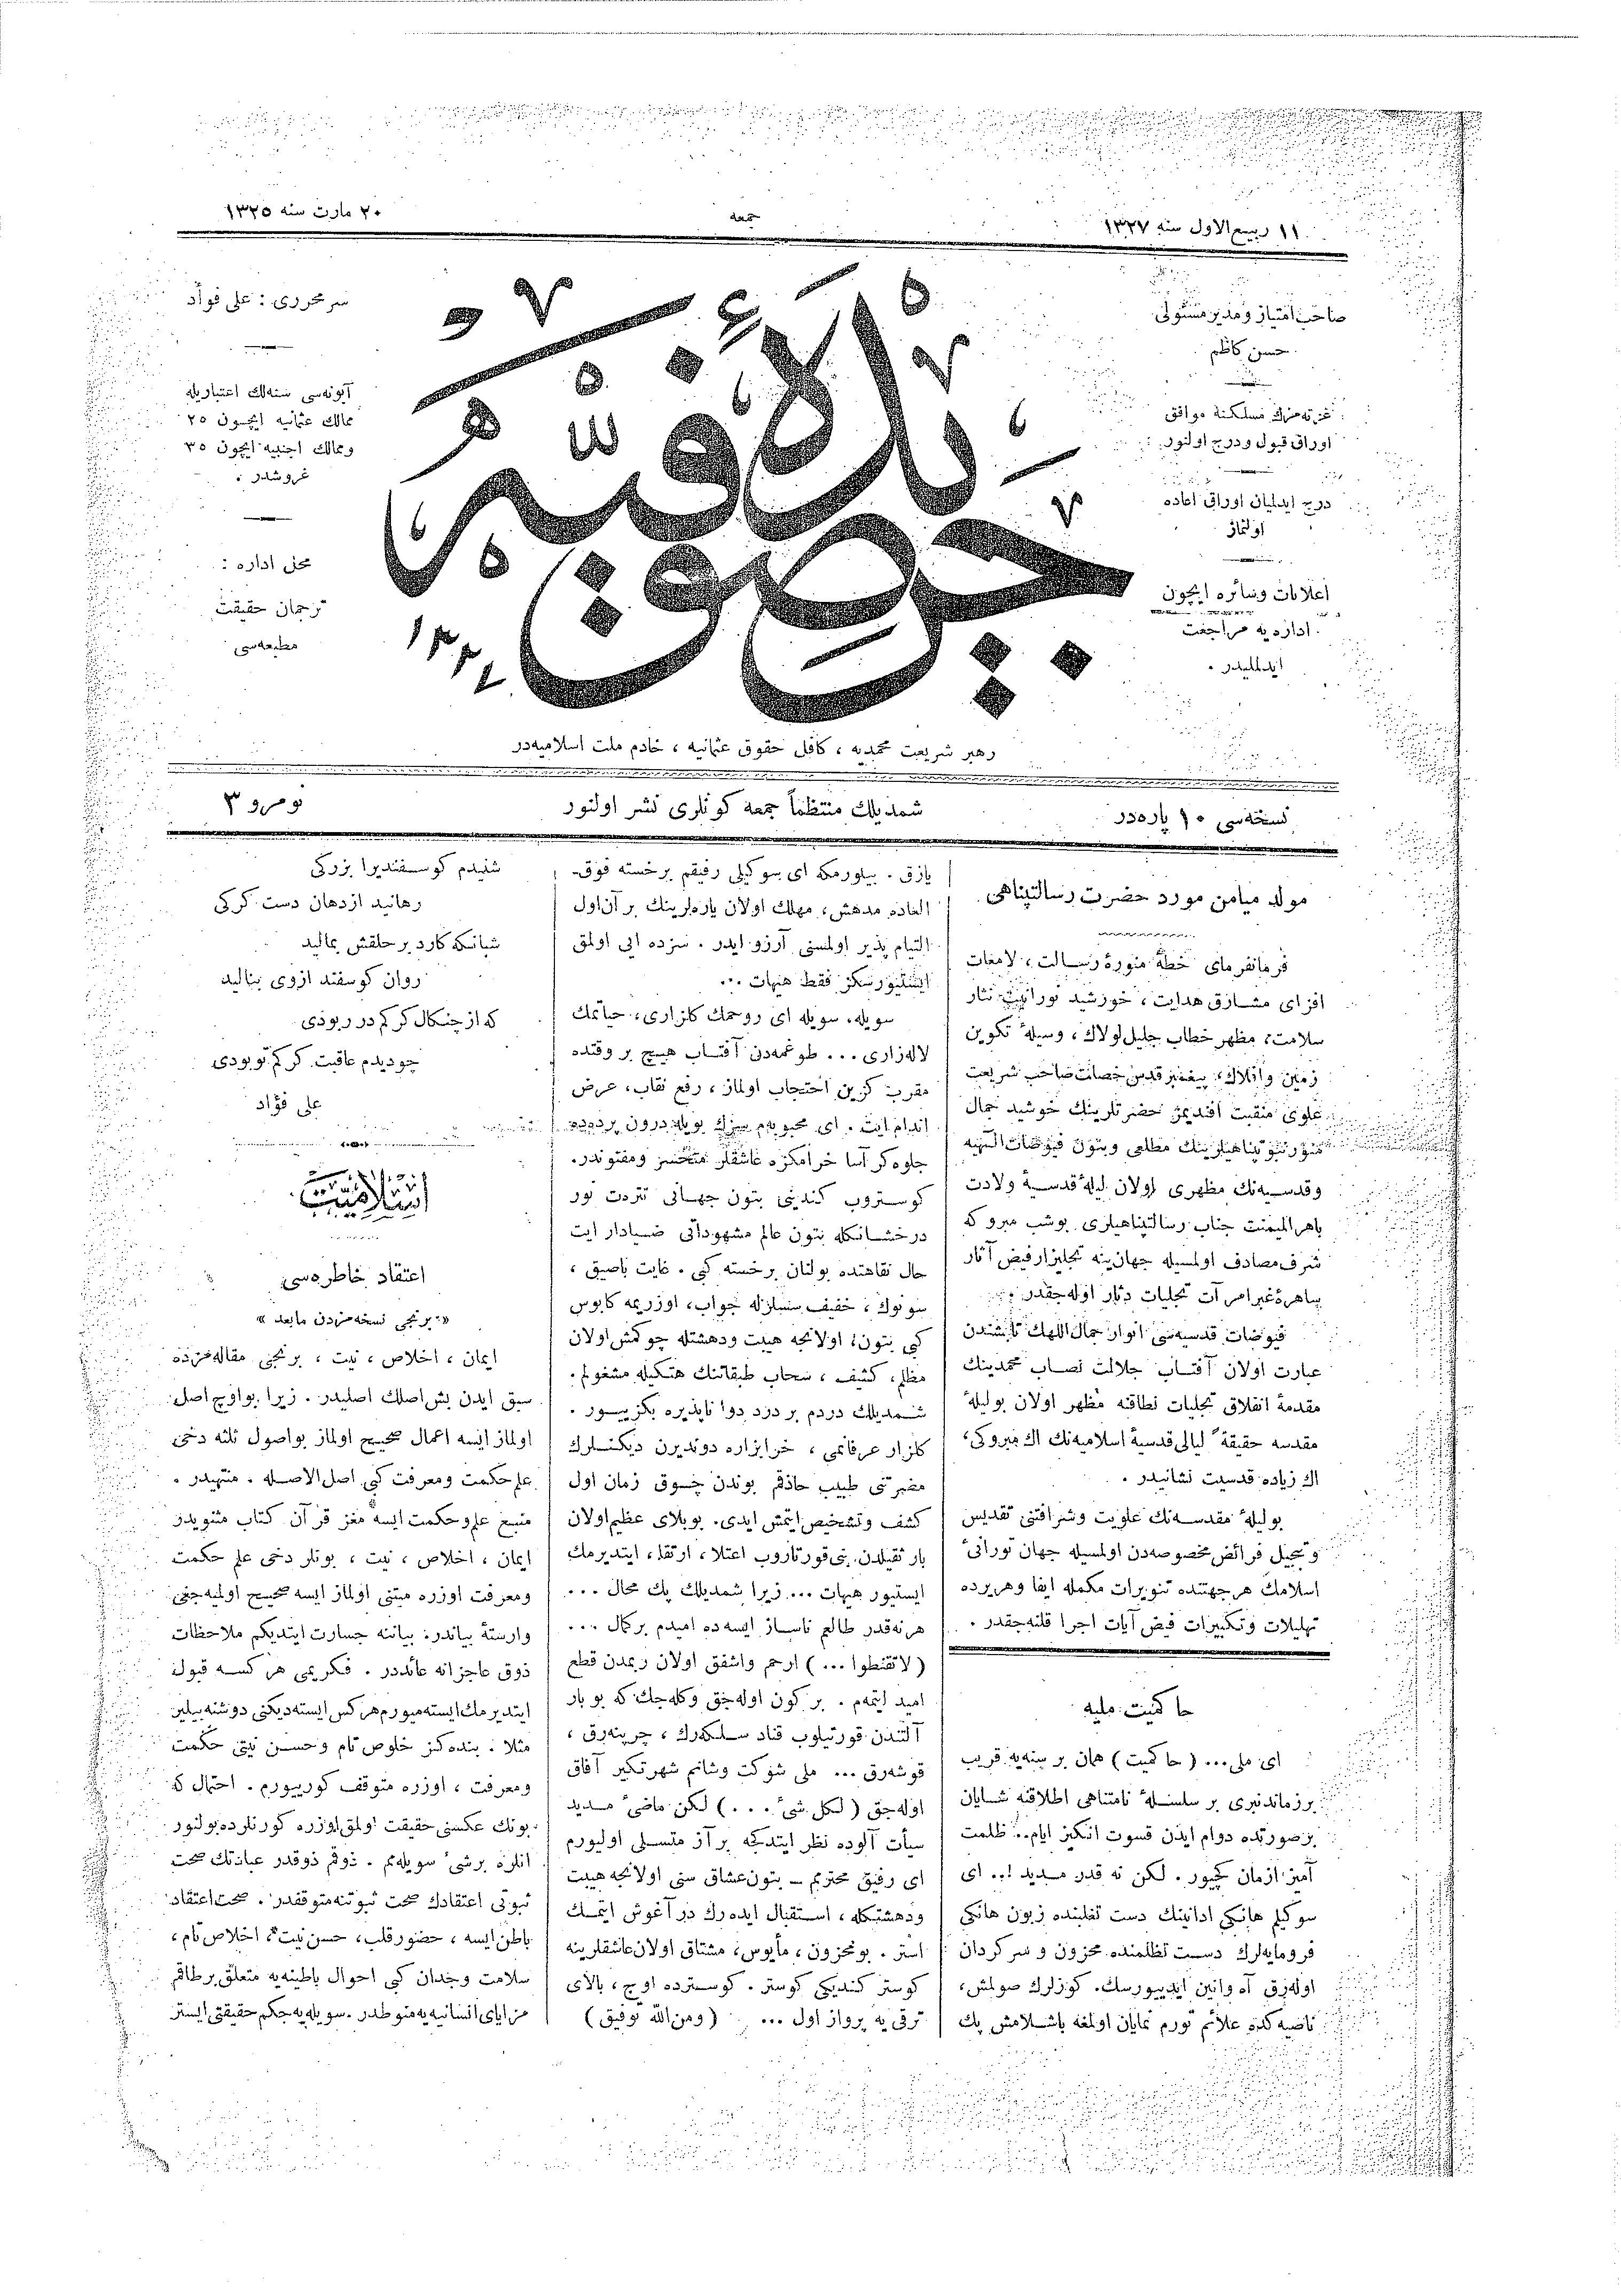 ١١ ربیع‌الاول سنه ١٣٢٧
جمعه
٢٠ مارت سنه ١٣٢٥
صاحب امتیاز ومدیر مسئولی
حسن کاظم
غزته‌مزك مسلکنه موافق
اوراق قبول ودرج اولنور
درج ایدلیان اوراق اعاده
اولنماز
اعلانات وسائره ایچون
اداره‌یه مراجعت
ایدلملیدر .
جریدهٔ صوفیه
١٣٢٧
سر محرری : علی فوأد
آبونه‌سی سنه‌لك اعتباریله
ممالك عثمانیه ایچون ٢٥
وممالك اجنبیه ایچون ٣٥
غروشدر .
محلی اداره :
ترجمان حقیقت
مطبعه‌سی
رهبر شریعت محمدیه ، کافل حقوق عثمانیه ، خادم ملت اسلامیه‌در
نسخه‌سی ١٠ پاره‌در
شمدیلك منتظماً جمعه کونلری نشر اولنور
نومرو ٣
مولد میامن مورد حضرت رسالتپناهی
فرمانفرمای خطهٔ منورهٔ رسالت، لامعات
افزای مشارق هدایت ، خورشید نورانیت نثار
سلامت، مظهر خطاب جلیل لولاك ، وسیلهٔ تکوین
زمین وافلاك، پیغمبر قدس خصلت صاحب شریعت
علوی منقبت افندیمز حضرتلرینك خوشید جمال
منور نبوتپناهیلرینك مطلعی وبتون فیوضات الهیه
وقدسیه‌نك مظهری اولان لیلهٔ قدسیهٔ ولادت
باهر المیمنت جناب رسالتپناهیلری بوشب مبروکه
شرف مصادف اولمسیله جهان ینه تجلیزار فیض آثار
بباهرهٔ غیرا مرآت تجلیات دثار اوله‌جقدر .
فیوضات قدسیه‌سی انوار جمال اللهك تابشندن
عبارت اولان آفتاب جلالت نصاب محمدینك
مقدمهٔ انفلاق تجلیات نطاقنه مظهر اولان بولیلهٔ
مقدسه حقیقةً لیالی قدسیهٔ اسلامیه‌نك اك مبروکی،
اك زیاده قدسیت نشانیدر .
بولیلهٔ مقدسه‌نك علویت وشرافتنی تقدیس
وتبجیل فرائض مخصوصه‌دن اولمسیله جهان نورانیٔ
اسلامك هر جهتنده تنویرات مکمله ایفا وهر یرده
تهلیلات وتکبیرات فیض آیات اجرا قلنه‌جقدر .
حاکمیت ملیه
ای ملی... (حاکمیت) همان بر سنه‌یه قریب
بر زماندنبری بر سلسلهٔ نامتناهی اطلاقنه شایان
بر صورتده دوام ایدن قسوت انکیز ایام.. ظلمت
آمیز ازمان کچیور . لکن نه قدر مدید !.. ای
سوکیلم هانکی ادانینك دست تغلبنده زبون هانکی
فرومایه‌لرك دست تظلمنده محزون و سرکردان
اوله‌رق آه وانین ایدییورسك. کوزلرك صولمش،
ناصیه‌کده علائم تورم نمایان اولمغه باشلامش پك
یازق . بیلورمکه ای سوکیلی رفیقم بر خسته فوق‌
العاده مدهش، مهلك اولان یاره‌لرینك بر آن اول
التیام پذیر اولمسنی آرزو ایدر . سزده ایی اولمق
ایستیورسکز فقط هیهات ...
سویله، سویله ای روحمك کلزاری، حیاتمك
لاله‌زاری ... طوغمه‌دن آفتاب هیچ بر وقتده
مقرب کزین احتجاب اولماز ، رفع نقاب، عرض
اندام ایت . ای محبوبه‌م سزك بویله درون پرده‌ده
جلوه‌کر آسا خرامکزه عاشقلر متحسر ومفتوندر.
کوستروب کندینی بتون جهانی تتردت نور
درخشانکله بتون عالم مشهوداتی ضیادار ایت
حال نقاهتده بولنان بر خسته کبی . غایت باصیق ،
سونوك ، خفیف سسلرله جواب، اوزریمه کابوس
کبی بتون، اولانجه هیبت ودهشتله چوکمش اولان
مظلم، کثیف ، سحاب طبقاتنك هتکیله مشغولم.
شمدیلك دردم بر درد دوا ناپذیره بکزییور .
کلزار عرفانمی ، خرابزاره دوندیرن دیکنلرك
مضرتنی طبیب حاذقم بوندن چوق زمان اول
کشف وتشخیص ایتمش ایدی. بوبلای عظیم اولان
بار ثقیلدن بنی قورتاروب اعتلا ، ارتقا، ایتدیرمك
ایستیور هیهات ... زیرا شمدیلك پك محال ...
هرنه‌قدر طالعم ناساز ایسه‌ده امیدم بر کمال ...
(لاتقنطوا ...) ارحم واشفق اولان ربمدن قطع
امید ایتمم . بر کون اوله‌جق وکله‌جك که بو بار
آلتندن قورتیلوب قناد سلکه‌رك ، چرپنه‌رق ،
قوشه‌رق ... ملی شوکت وشانم شهرتکیر آفاق
اوله‌جق (لکل شیٔ ...) لکن ماضیٔ مدید
سیأت آلوده نظر ایتدکجه بر آز متسلی اولیورم
ای رفیق محترم ــ بتون عشاق سنی اولانجه هیبت
ودهشتکله ، استقبال ایده‌رك درآغوش ایتمك
استر . بومحزون ، مأیوس، مشتاق اولان عاشقلرینه
کوستر کندیکی کوستر . کوستر‌ده اوج ، بالای
ترقی یه پرواز اول ... (ومن‌الله توفیق)
شنیدم کوسفندیرا بزرکی
رهانید ازدهان دست کرکی
شبانکه کارد بر حلقش بمالید
روان کوسفند ازوی بنالید
که از چنکال کرکم در ربودی
چودیدم عاقبت کرکم توبودی
علی فؤاد
اسلامیت
اعتقاد خاطره‌سی
« برنجی نسخه‌مزدن مابعد »
ایمان ، اخلاص ، نیت ، برنجی مقاله‌مزده
سبق ایدن بش اصلك اصلیدر . زیرا بواوچ اصل
اولماز ایسه اعمال صحیح اولماز بواصول ثلثه دخی
علم حکمت ومعرفت کبی اصل الاصله . منتهیدر .
منبع علم وحکمت ایسه مغز قرآن کتاب مثنویدر
ایمان ، اخلاص ، نیت ، بونلر دخی علم حکمت
ومعرفت اوزره مبتنی اولماز ایسه صحیح اولمیه‌جغی
وارستهٔ بیاندر. بیاننه جسارت ایتدیکم ملاحظات
ذوق عاجزانه عائددر . فکریمی هر کسه قبول
ایتدیرمك ایسته‌میورم هرکس ایسته‌دیکنی دوشنه‌بیلیر
مثلا . بنده‌کز خلوص تام وحسن نیتی حکمت
ومعرفت ، اوزره متوقف کورییورم . احتمال که
بونك عکسنی حقیقت اولمق اوزره کورنلرده بولنور
انلره برشیٔ سویله‌مم . ذوقم ذوقدر عبادتك صحت
ثبوتی اعتقادك صحت ثبوتنه متوقفدر . صحت اعتقاد
باطن ایسه ، حضور قلب، حسن نیت ، اخلاص تام،
سلامت وجدان کبی احوال باطنیه‌یه متعلق برطاقم
مزایای انسانیه‌یه منوطدر .سویله‌یه‌جکم حقیقتی ایستر